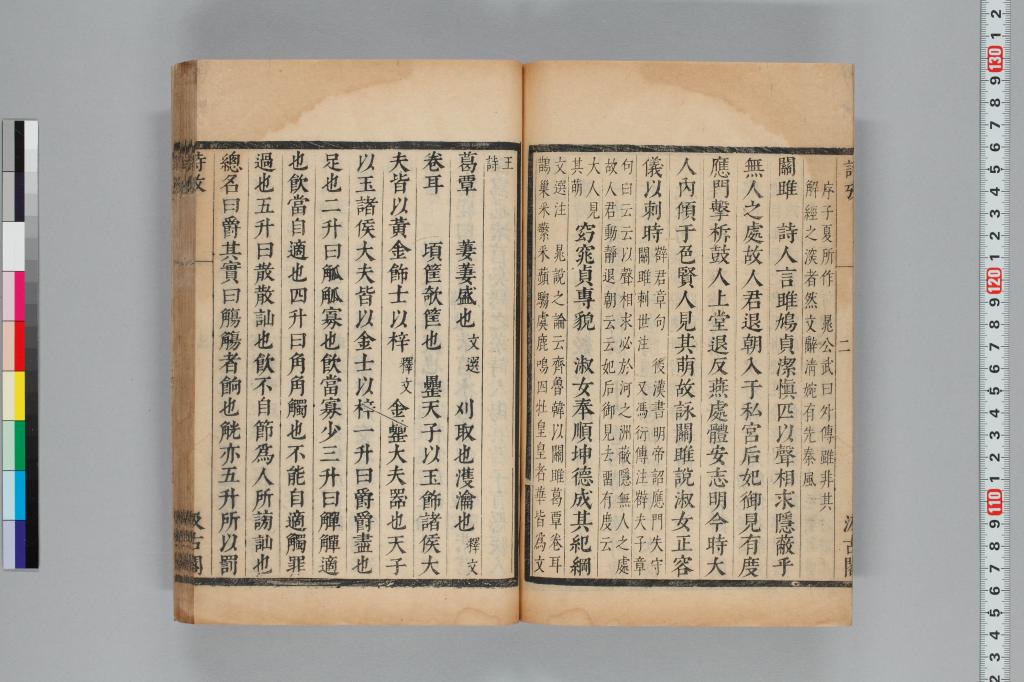 詩攷 二 汲古閣
序子夏所作 晁公武曰外傳雖非其
解經之深者然文辭清婉有先秦風
關雎 詩人言雎鳩貞潔愼匹以聲相求隱蔽乎
無人之處故人君退朝入于私宮后妃御見有度
應門擊柝鼓人上堂退反燕處體安志明今時大
人內傾于色賢人見其萌故詠關雎說淑女正容
儀以刺時 薛君章句 後漢書明帝詔應門失守
關雎刺世注 又馮衍傳注薛夫子章
句曰云云以聲相求必於河之洲蔽隱無人之處
故人君動靜退朝云云妃后御見去畱有度云云
大人見
其萌 窈窕貞專貌 淑女奉順坤德成其紀綱
文選注 晁說之論云齊魯韓以關雎葛覃卷耳
鵲巢采蘩采蘋騶虞鹿鳴四牡皇皇者華皆爲文
王
詩
葛覃 萋萋盛也 文選 刈取也濩瀹也 釋文
卷耳 頃筐欹筐也 罍天子以玉飾諸侯大
夫皆以黃金飾士以梓 釋文 金罍大夫器也天子
以玉諸侯大夫皆以金士以梓一升曰爵爵盡也
足也二升曰觚觚寡也飲當寡少三升曰觶觶適
也飲當自適也四升曰角角觸也不能自適觸罪
過也五升曰散散訕也飲不自節爲人所謗訕也
總名曰爵其實曰觴觴者餉也觥亦五升所以罰
詩攷 汲古閣